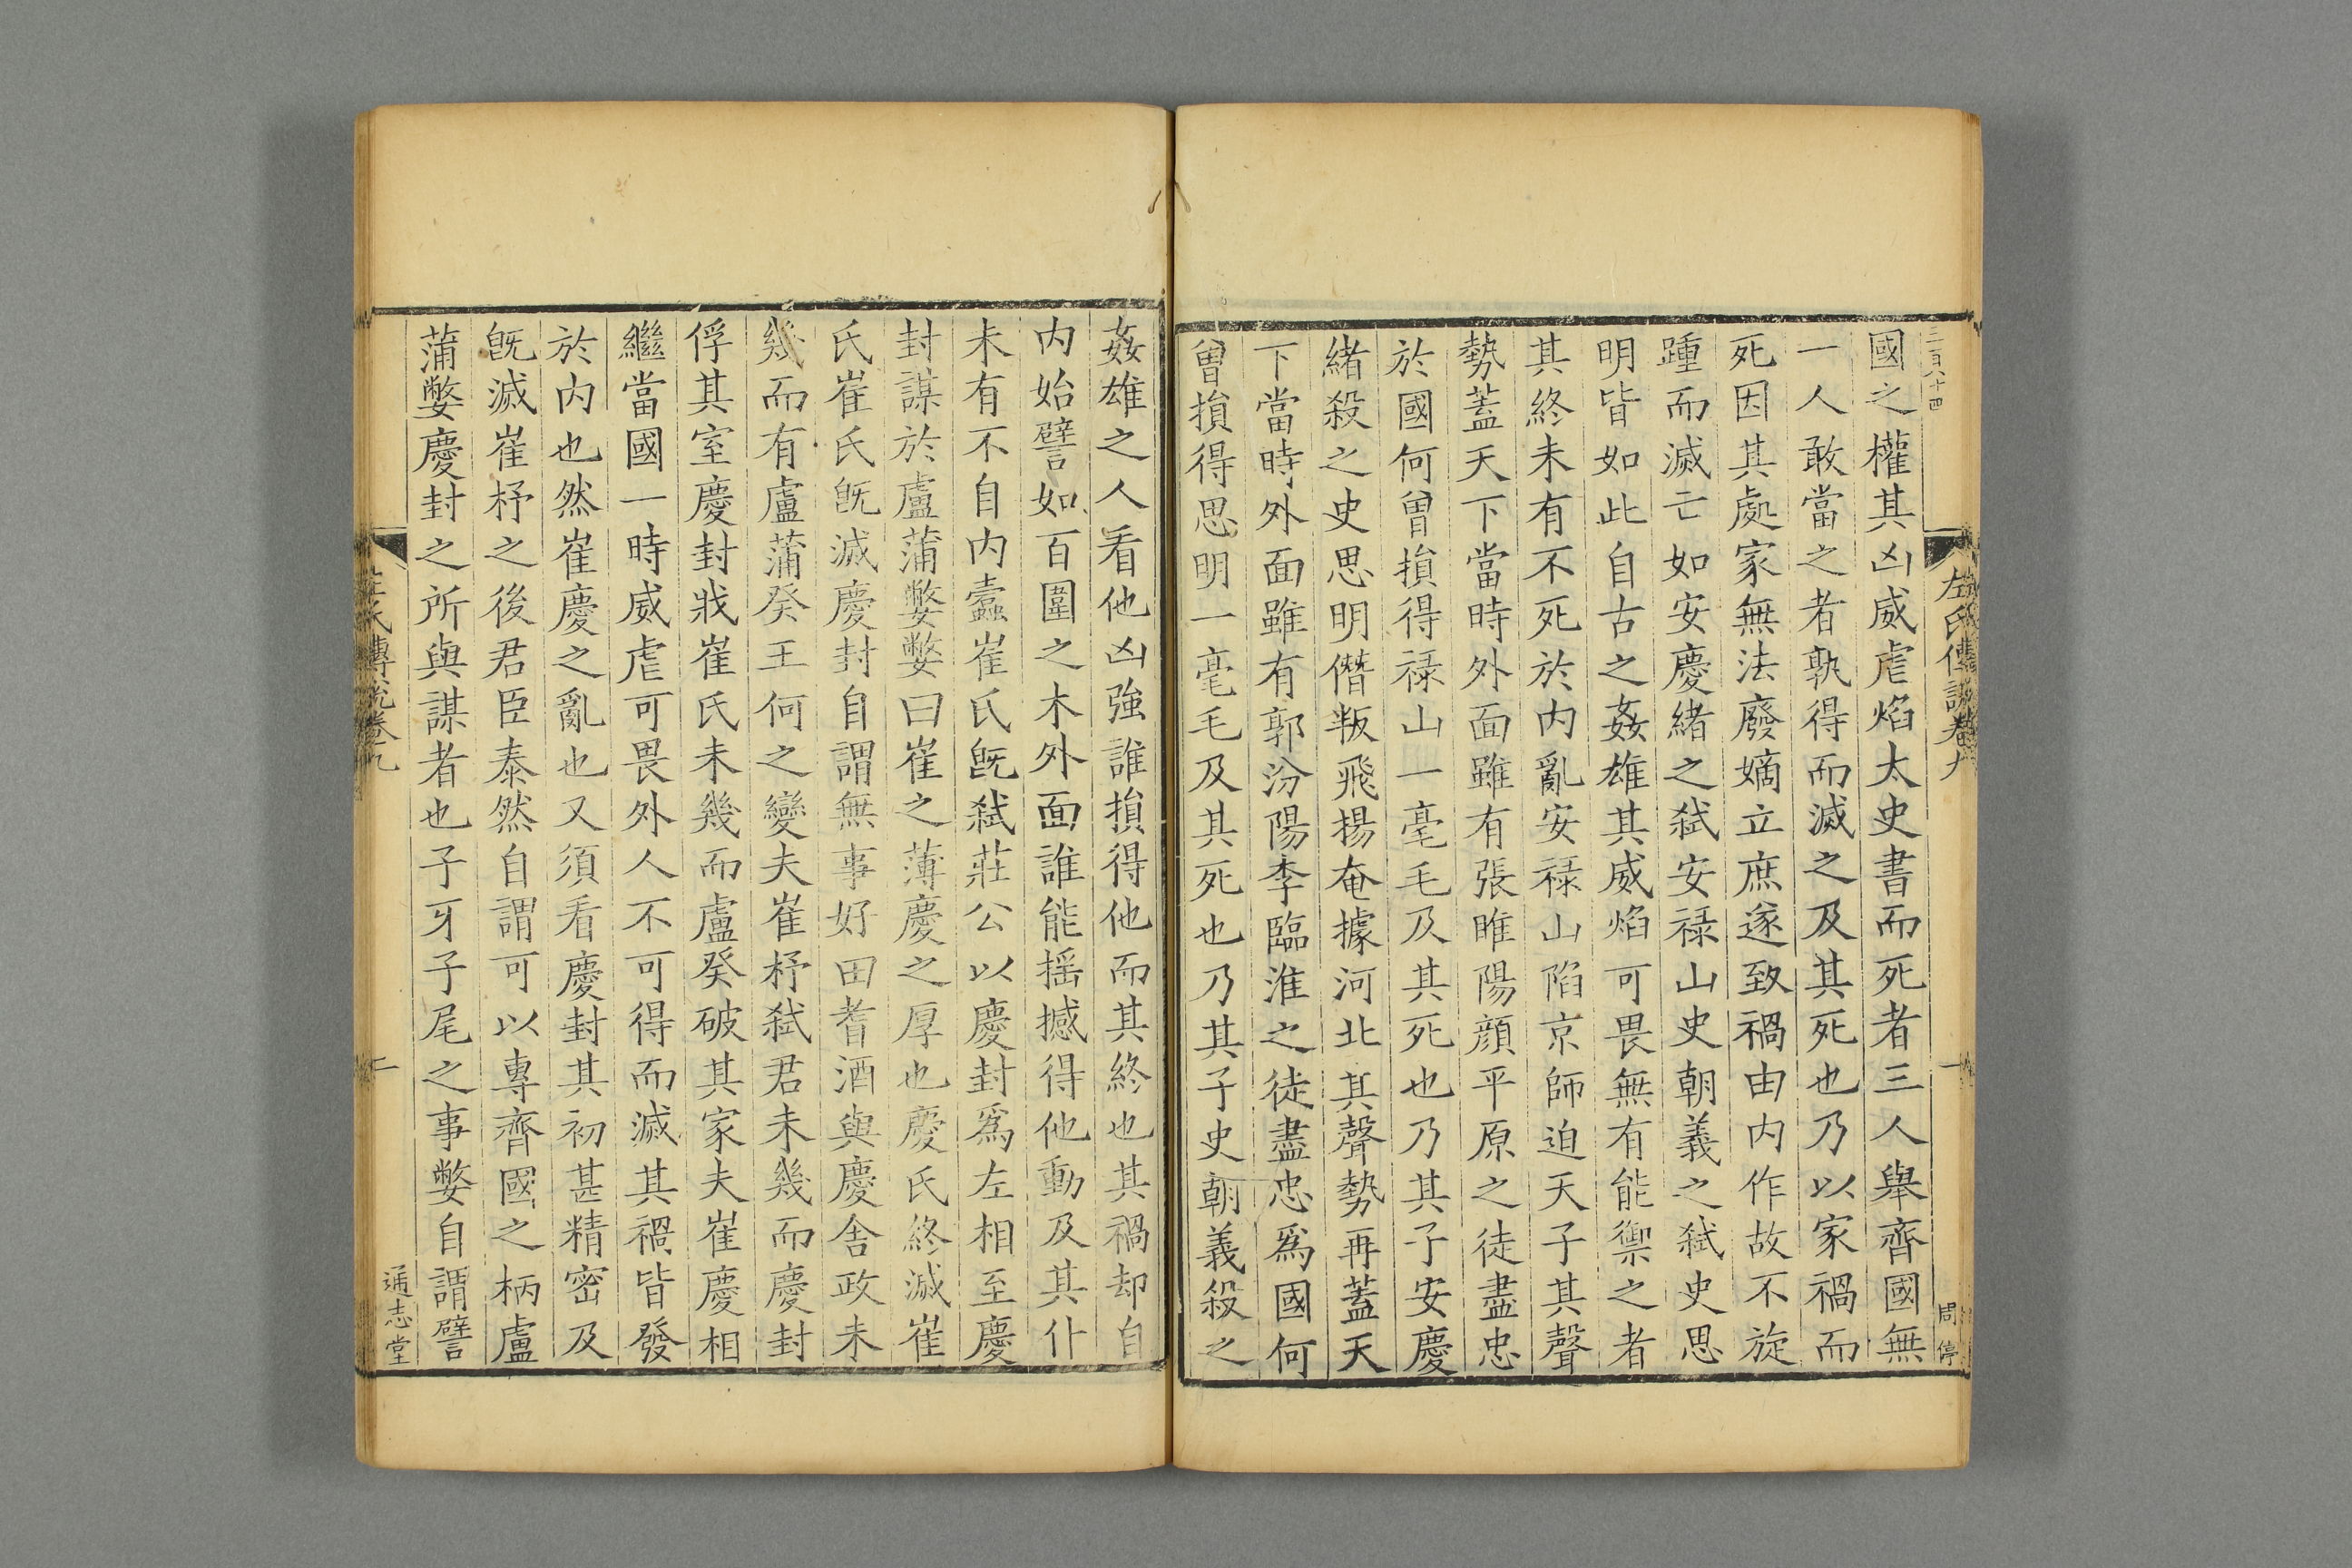 三百八十四
左氏傳說卷九
一
周停
國之權其凶威虐焰太史書而死者三人舉齊國無
一人敢當之者孰得而滅之及其死也乃以家禍而
死因其處家無法廢嫡立庶遂致禍由内作故不旋
踵而滅亡如安慶緒之弑安禄山史朝義之弑史思
明皆如此自古之姦雄其威焰可畏無有能禦之者
其終未有不死於内亂安禄山陷京師迫天子其聲
勢蓋天下當時外面雖有張睢陽顔平原之徒盡忠
於國何曾損得禄山一毫毛及其死也乃其子安慶
緒殺之史思明僭叛飛揚奄據河北其聲勢再蓋天
下當時外面雖有郭汾陽李臨淮之徒盡忠爲國何
曾損得思明一毫毛及其死也乃其子史朝義殺之
姦雄之人看他凶強誰損得他而其終也其禍却自
内始譬如百圍之木外面誰能揺撼得他動及其仆
未有不自内蠹崔氏旣弑莊公以慶封爲左相至慶
封謀於盧蒲嫳嫳曰崔之薄慶之厚也慶氏終滅崔
氏崔氏旣滅慶封自謂無事好田耆酒與慶舍政未
幾而有盧蒲癸王何之變夫崔杼弑君未幾而慶封
俘其室慶封戕崔氏未幾而盧癸破其家夫崔慶相
繼當國一時威虐可畏外人不可得而滅其禍皆發
於内也然崔慶之亂也又須看慶封其初甚精密及
旣滅崔杼之後君臣泰然自謂可以專齊國之柄盧
蒲嫳慶封之所與謀者也子牙子尾之事嫳自謂譬
左氏傳說卷九
二
通志堂